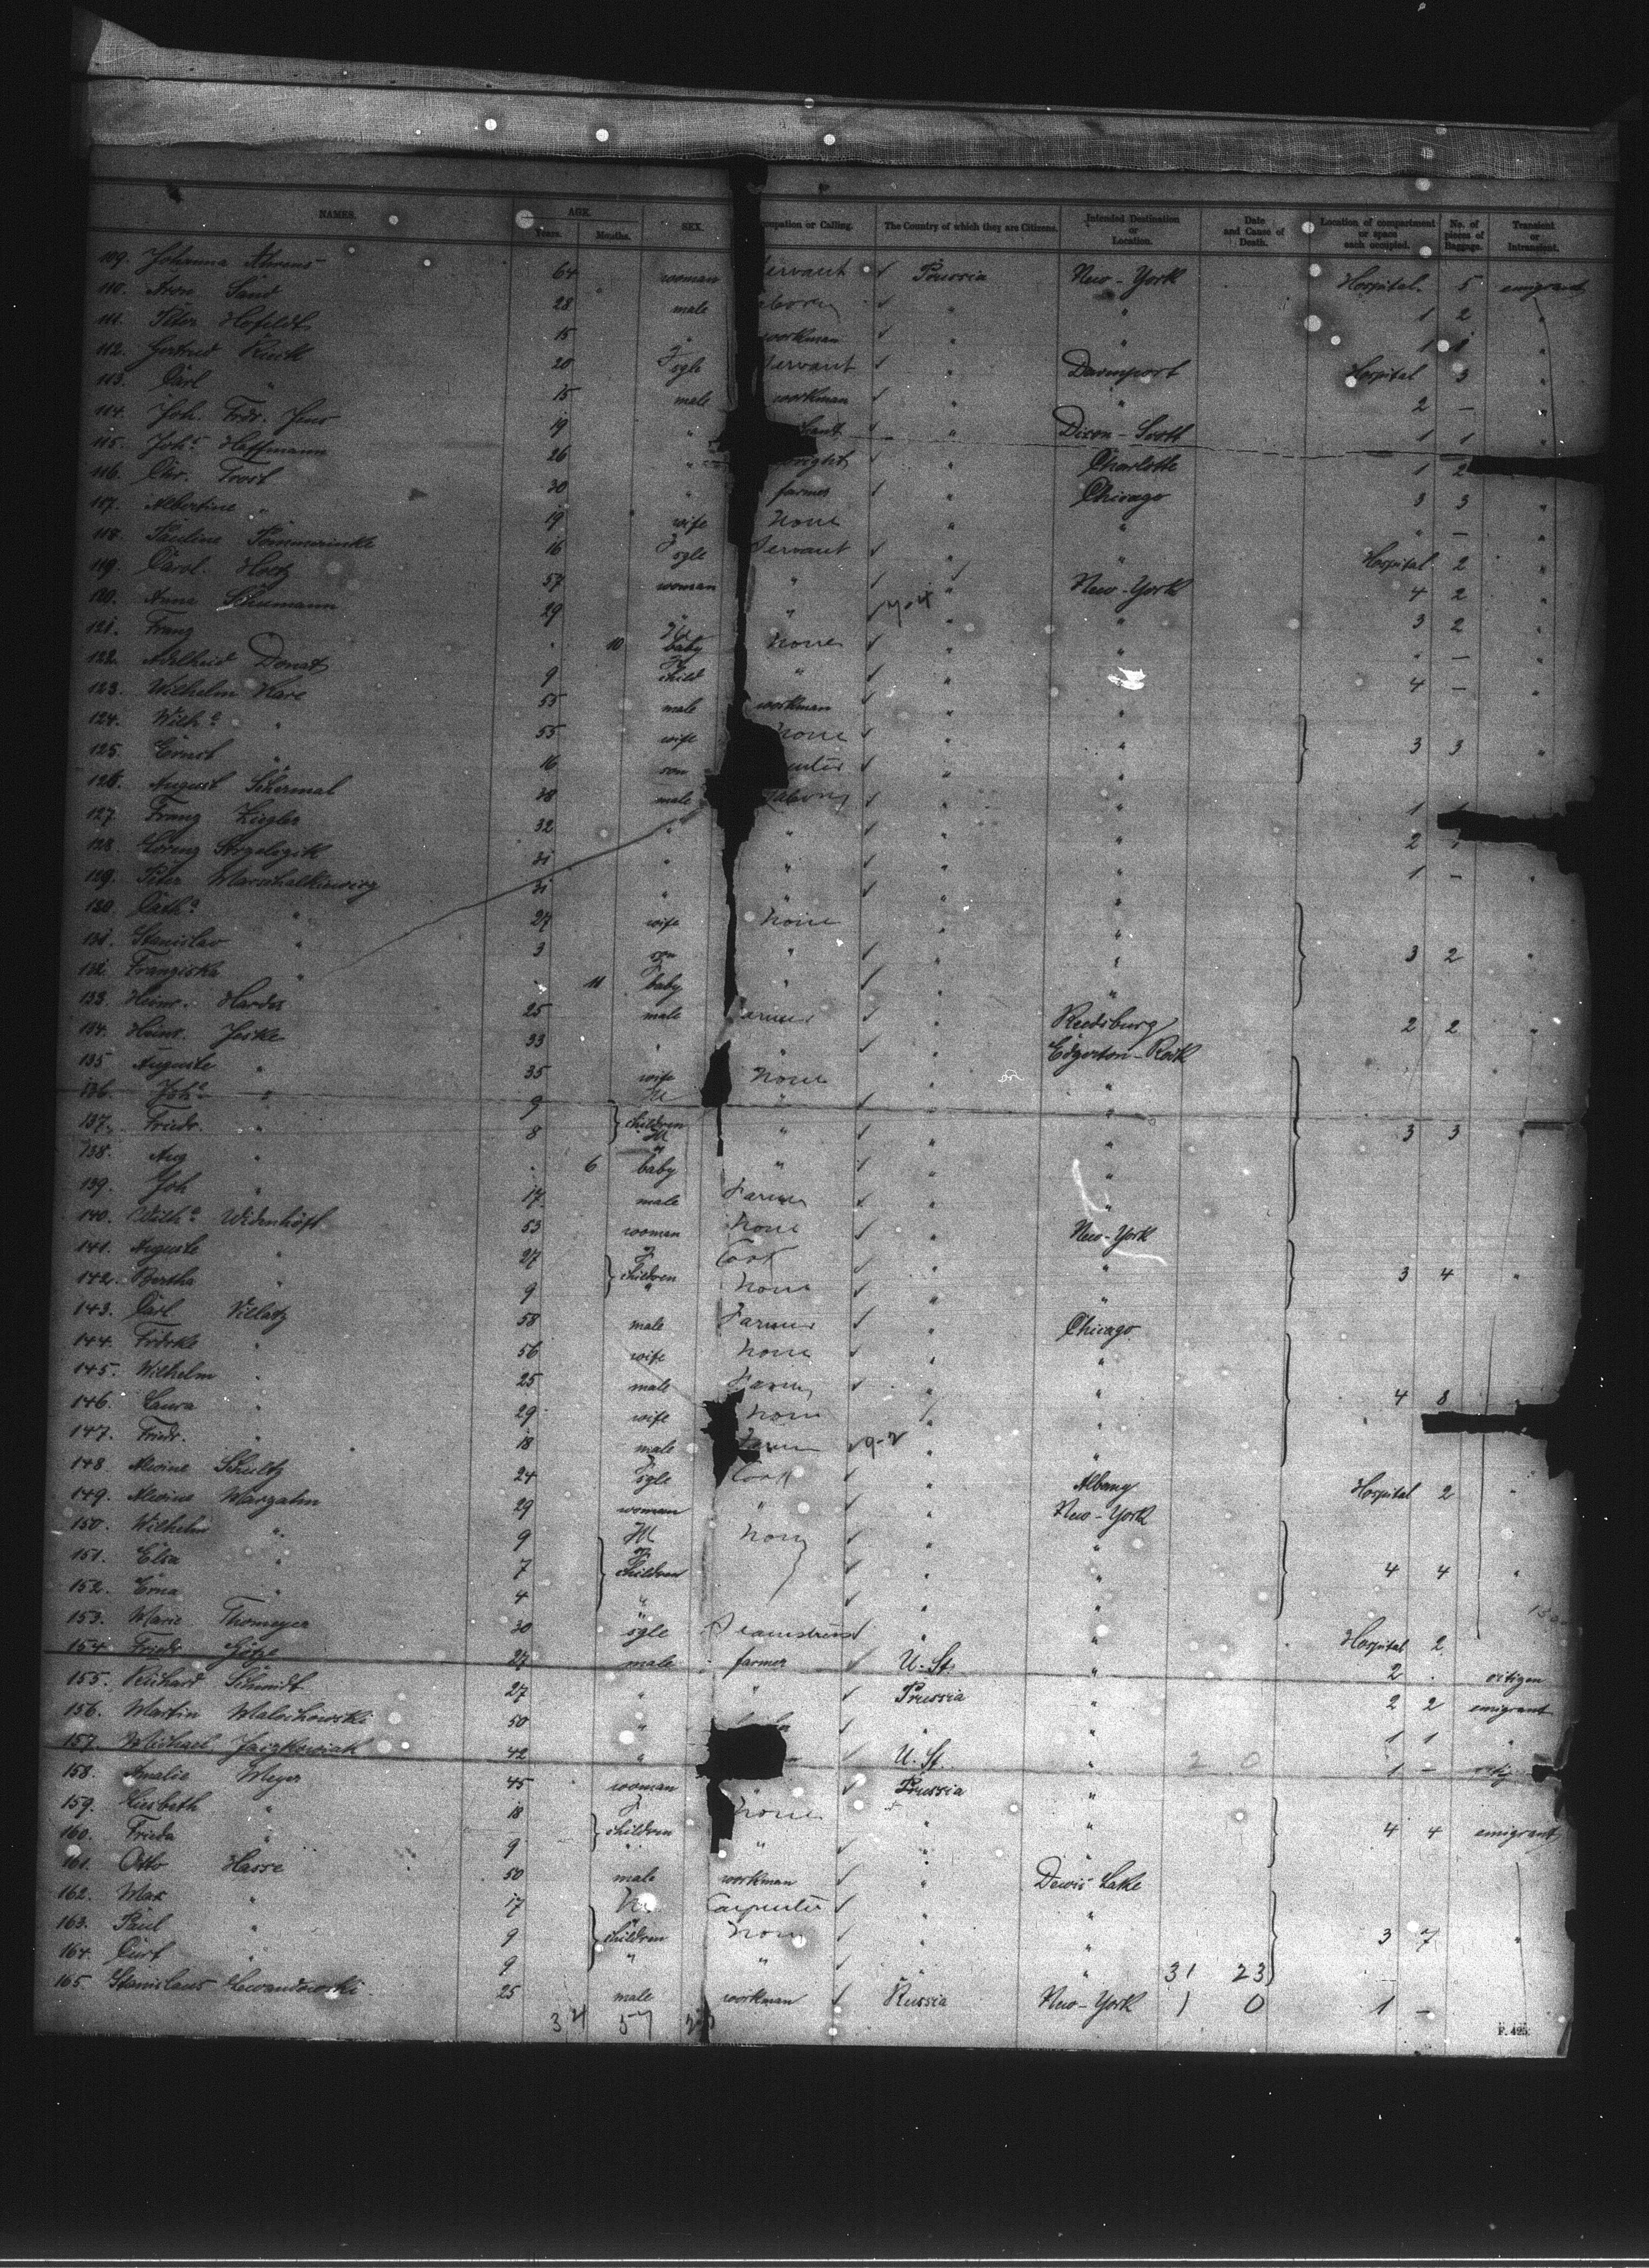 NAMES. AGE. Years. Months. SEX. cupation or Calling. The Country of which they are Citizens. Intended Destination or Location. Date and Cause of Death. Location of compartment or space each occupied. No. of pieces of Baggage. Transient or Intransient.
109. Johanna Ahrens 64 woman Servant Prussia New-York Hospital. 5 emigrant
110. Aron Sand 28 male " " 1 2 "
111. Peter Hofeldt 15 " workman " " 1 "
112. Gertrud Rieck 20 F sgle Servant " Davenport Hospital 3 "
113. Carl " 15 male workman " " 2 — "
114. Joh. Frdr. Jens 19 " " Dixon-Scott 1 1 "
115. Joh.s Hoffmann 26 " " Charlotte 1 2
116. Chr. Trost 30 " farmer " Chicago 3 3 "
117. Albertine " 19 wife None " " " — "
118. Pauline 16 F sgle Servant " " Hospital 2 "
119. Carol. Hartz 57 woman " " New-York 4 2 "
120. Anna Schumann 29 " " " " 3 2 "
121. Franz 10 M baby None " " " — "
122. Adelheid Donat 9 child " " 4 — "
123. Wilhelm Kare 55 male workman " "
124. Wilh.e " 55 wife None " " 3 3 "
125. Ernst " 16 son " "
126. August Schermal 38 male " " 1
127. Franz Ziegler 32 " " " " 2
128. Lorenz 31 " " " " 1 — "
129. Peter Marschalkiewicz 31 " " " "
130. Cath.a " 27 wife None " "
131. Stanislav " 3 son " " " 3 2 "
132. Franziska " 11 F baby " " "
133. Heinr. Hardes 25 male Farmer " Reedsburg 2 2 "
134. Heinr. Jeske 33 " " " Edgerton-Rock
135. Auguste " 35 wife None " "
136. Joh.s " 9 M " " "
137. Friedr. " 8 children M " " " 3 3
138. Aug " 6 baby " " "
139. Joh " 17 male Farmer " "
140. Wilh.e Widenhöft 53 woman None " New-York
141. Auguste " 27 F children Cook " " 3 4 "
142. Bertha " 9 " None " "
143. Carl Villatz 58 male Farmer " Chicago
144. Frdrke " 56 wife None " "
145. Wilhelm " 25 male Farmer " " 4 8 "
146. Laura " 29 wife None " "
147. Friedr. " 18 male Farmer 9-2 " "
148. Alwine Schultz 24 F sgle Cook " Albany Hospital 2 "
149. Alwine Margahn 29 woman " " New-York
150. Wilhelm " 9 M None " "
151. Elsa " 7 F children " " 4 4 "
152. Erna " 4 " " "
153. Marie Thomeyer 30 sgle Seamstress " " Hospital 2
154. Friedr Götze 27 male farmer U. St. " 2 . citizen
155. Richard Schmidt 27 " " Prussia " 2 2 emigrant
156. Martin Malochowski 50 " " " 1 1 "
157. Michael Jaczkowiak 42 " U. St. " 1 —
158. Amalie Meyer 45 woman " Prussia "
159. Liesbeth " 18 F children None " " 4 4 emigrant
160. Frieda " 9 " " " "
161. Otto Hasse 50 male workman " Dewis Lake
162. Max " 17 M Carpenter " "
163. Paul " 9 children None " " 3 7 "
164. Curt " 9 " " " " 31 23
165. Stanislaus Lewandowski 25 male workman Russia New-York 1 0 1 —
34 57
F. 425.